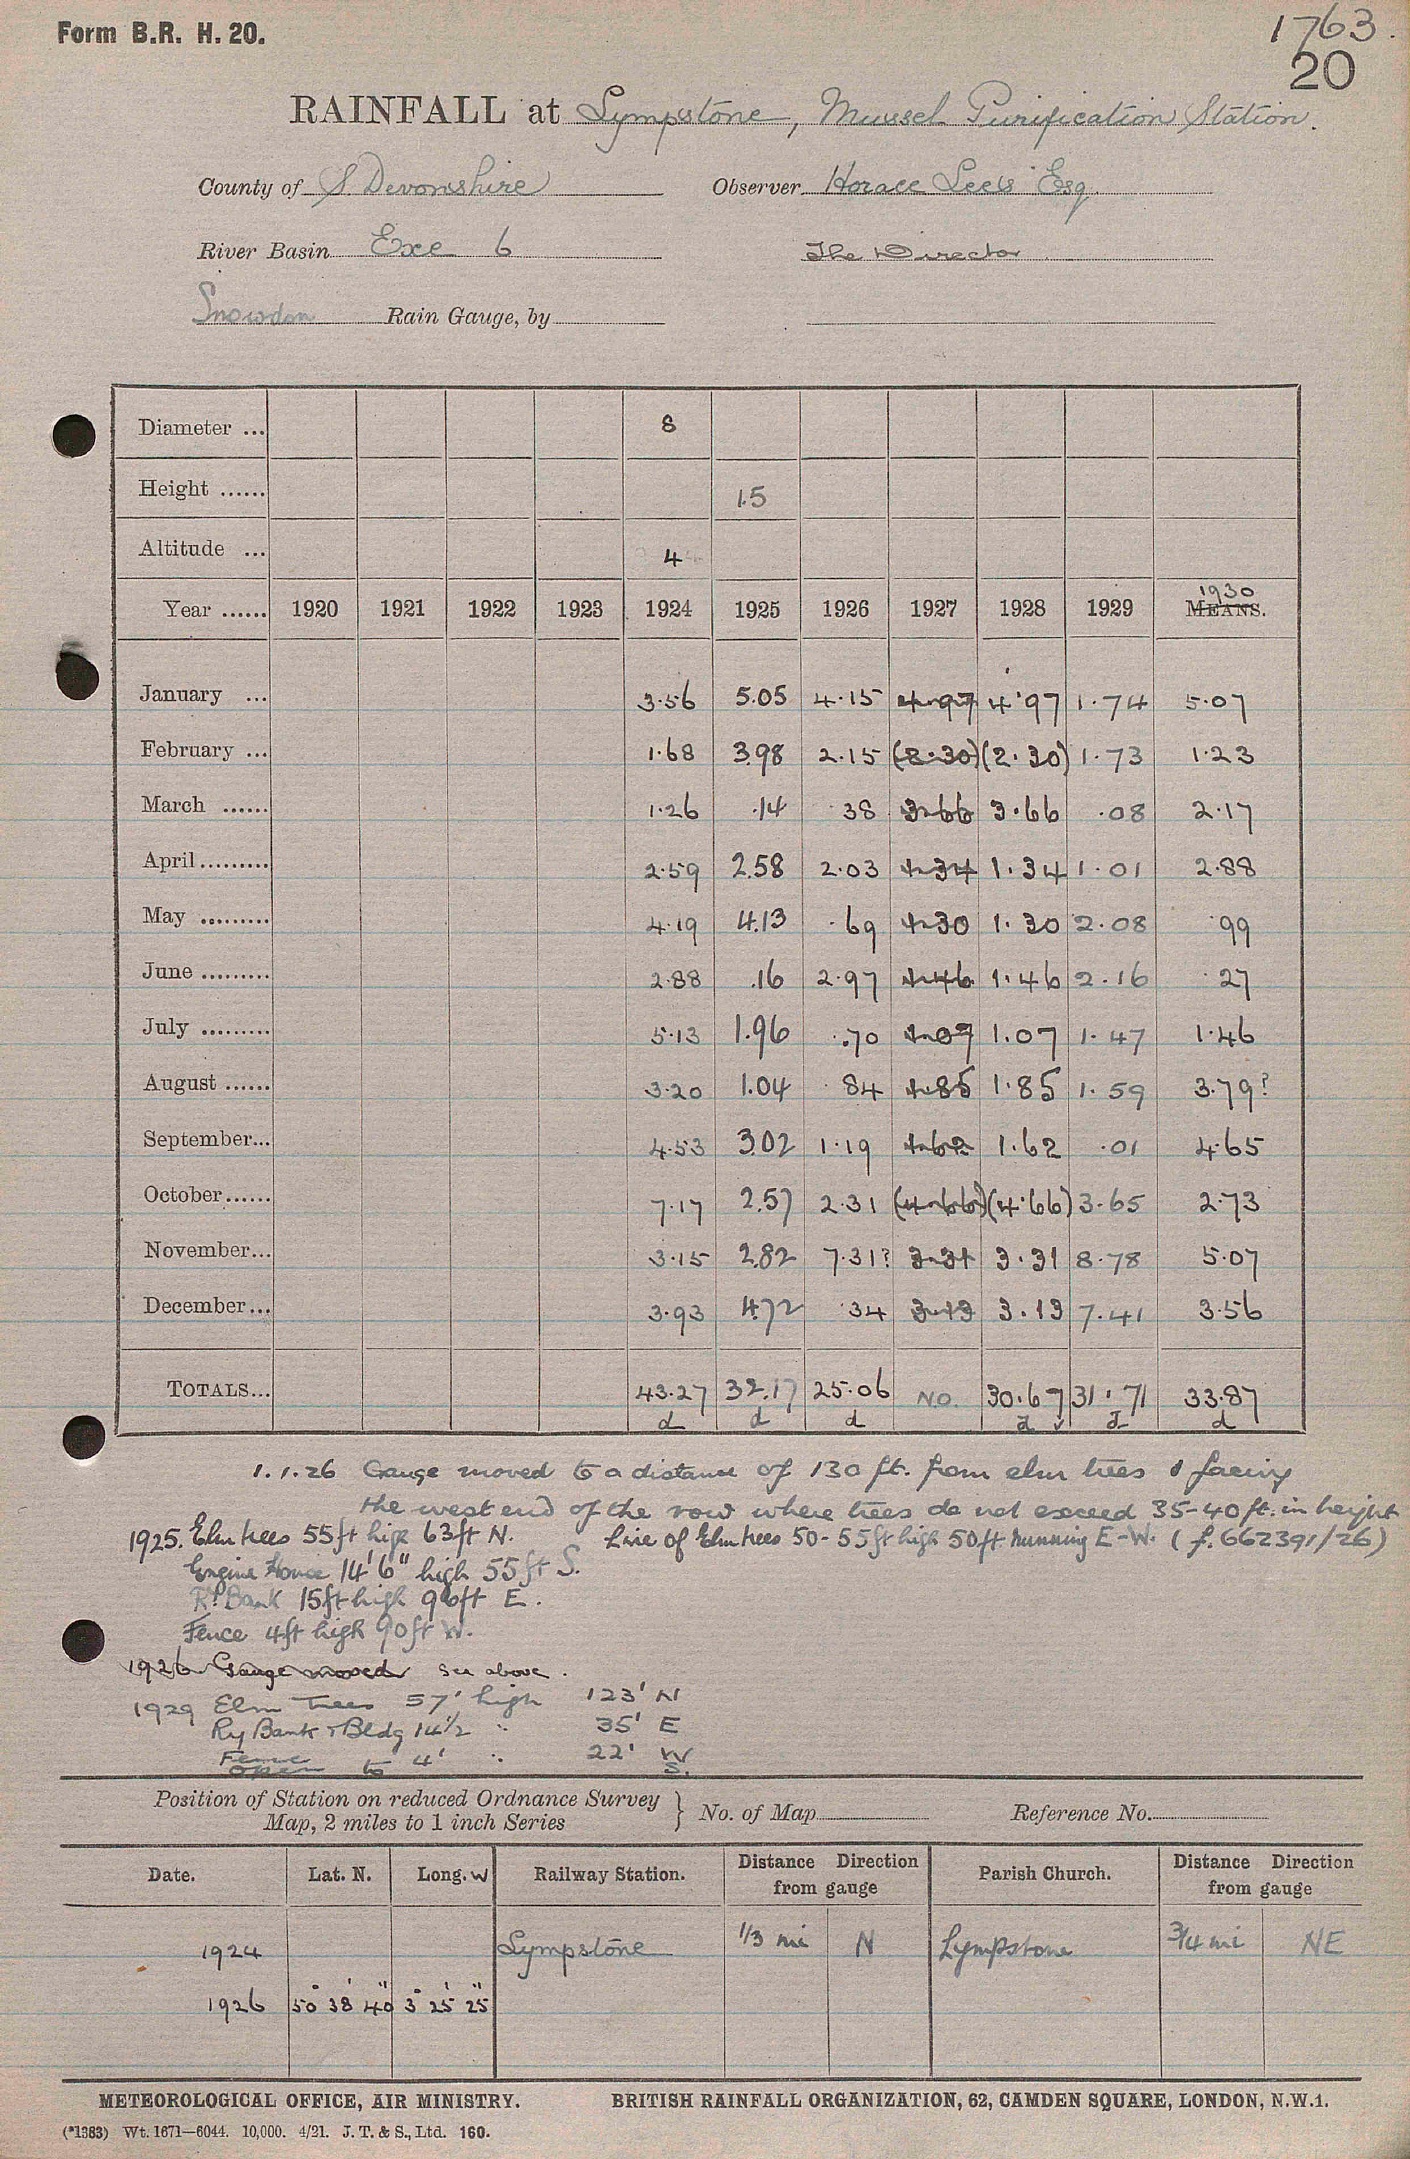 Form B.R. H. 20.
1763.
20
RAINFALL at Lympstone, Mussel Purification Station.
County of S. Devonshire Observer Horace Lees Esq.
River Basin Exe 6 The Director
Snowdon Rain Gauge, by
Diameter ... 8
Height ...... 1.5
Altitude ... 4
Year ...... 1920 1921 1922 1923 1924 1925 1926 1927 1928 1929 1930 MEANS.
January ... 3.56 5.05 4.15 4.97 4.97 1.74 5.07
February ... 1.68 3.98 2.15 (2.30) (2.30) 1.73 1.23
March ...... 1.26 .14 38 3.66 3.66 .08 2.17
April ......... 2.59 2.58 2.03 1.34 1.34 1.01 2.88
May ......... 4.19 4.13 .69 1.30 1.30 2.08 .99
June ......... 2.88 .16 2.97 1.46 1.46 2.16 .27
July ......... 5.13 1.96 .70 1.07 1.07 1.47 1.46
August ...... 3.20 1.04 .84 1.85 1.85 1.59 3.79?
September... 4.53 3.02 1.19 1.62 1.62 .01 4.65
October...... 7.17 2.57 2.31 (4.66) (4.66) 3.65 2.73
November... 3.15 2.82 7.31? 3.31 3.31 8.78 5.07
December... 3.93 4.72 .34 3.13 3.13 7.41 3.56
TOTALS... 43.27 32.17 25.06 NO. 30.67 31.71 33.87
d d d d ✓ d d
1.1.26 Gauge moved to a distance of 130 ft. from elm trees & facing
the west end of the row where trees do not exceed 35-40 ft. in height
1925. Elm trees 55ft high 63ft N. Line of Elm trees 50-55ft high 50ft running E-W. (f. 662391/26)
Engine House 14'6" high 55ft S.
Ry. Bank 15ft high 96ft E.
Fence 4ft high 90ft W.
1926 Gauge moved see above.
1929 Elm Trees 57' high 123' N
Ry Bank & Bldg 14½ " 35' E
Fence to 4' " 22' W
open S.
Position of Station on reduced Ordnance Survey
Map, 2 miles to 1 inch Series } No. of Map Reference No.
Date. Lat. N. Long. W Railway Station. Distance Direction from gauge Parish Church. Distance Direction from gauge
1924 Lympstone 1/3 mi N Lympstone 3/4 mi NE
1926 50° 38' 40" 3° 25' 25"
METEOROLOGICAL OFFICE, AIR MINISTRY. BRITISH RAINFALL ORGANIZATION, 62, CAMDEN SQUARE, LONDON, N.W.1.
(*1383) Wt. 1671—6044. 10,000. 4/21. J. T. & S., Ltd. 160.